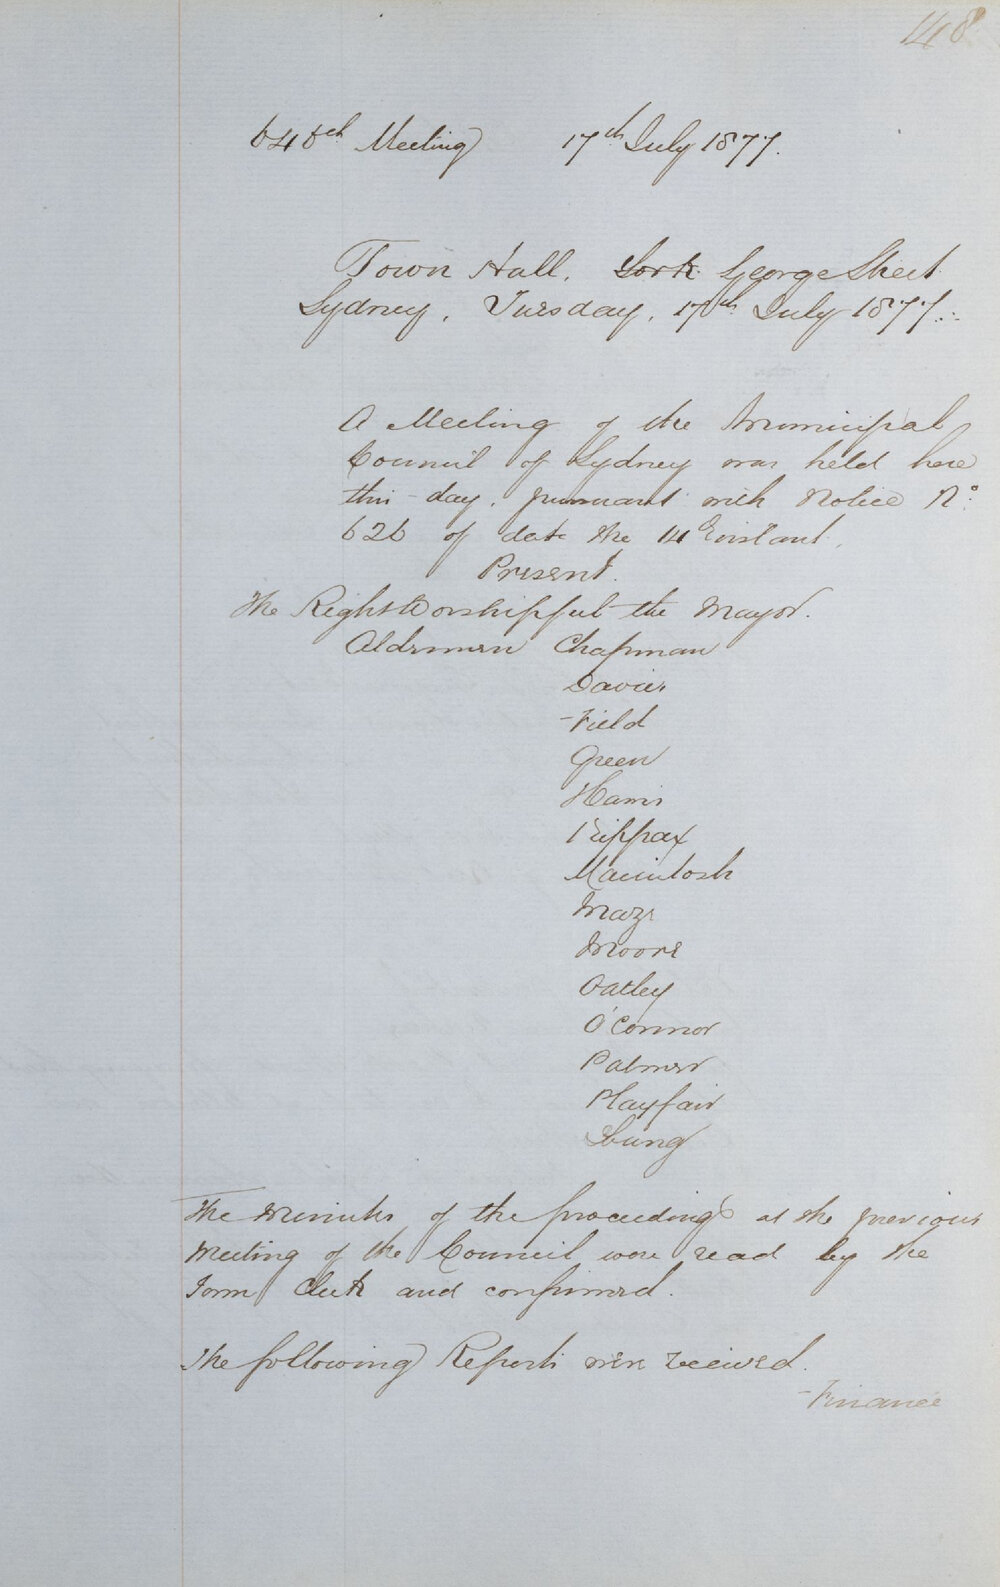 148
646th Meeting 17th July 1877.
Town Hall, York George Street
Sydney, Tuesday, 17th July 1877.
A Meeting of the Municipal
Council of Sydney was held here
this day, pursuant with Notice No.
626 of date the 14 Instant.
Present.
The Right Worshipful the Mayor.
Aldermen Chapman
Davies
Field
Green
Harris
Kippax
Macintosh
Maze
Moore
Oatley
O'Connor
Palmer
Playfair
Young
The Minutes of the proceedings at the previous
Meeting of the Council were read by the
Town Clerk and confirmed.
The following Reports were received.
Finance